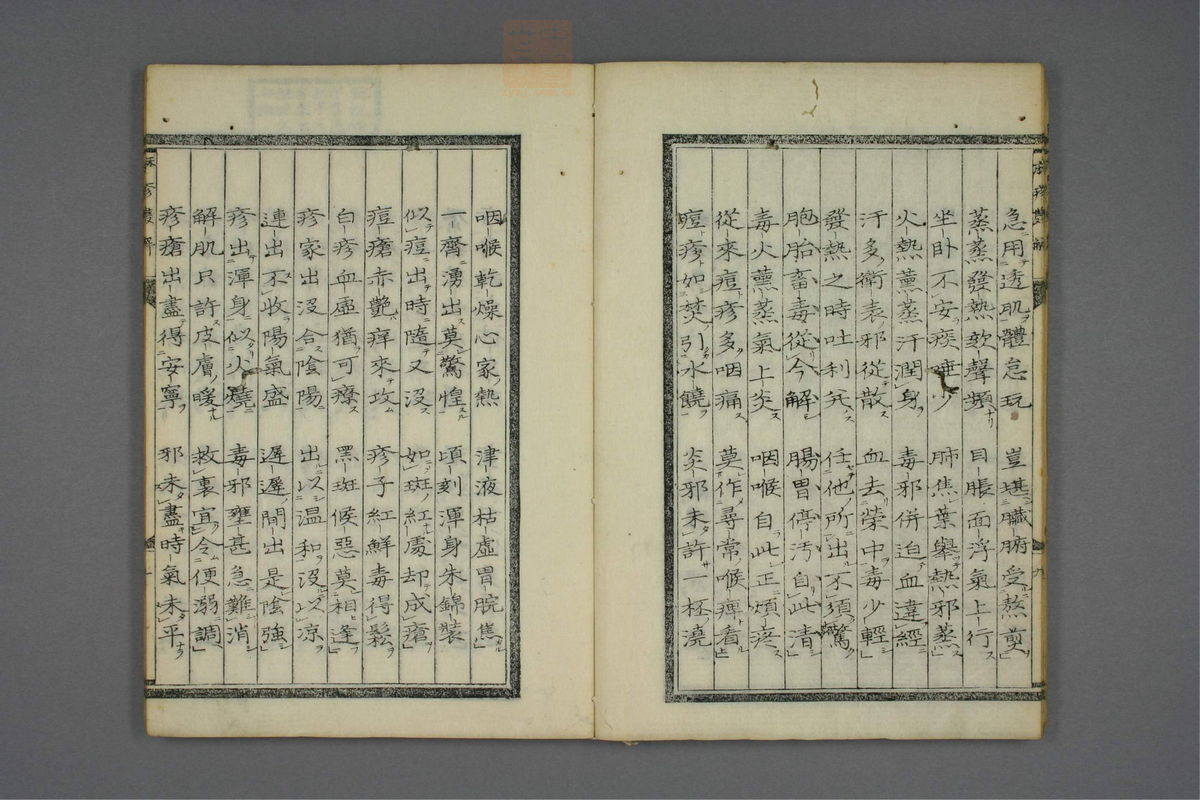 急用透肌體怠玩　豈堪臟腑受熬煎
蒸蒸發熱欬聲頻　目脹面浮氣上行
坐臥不安痰唾少　肺焦葉舉熱邪蒸
火熱薰蒸汗潤身　毒邪併迫血違經
汗多衛表邪從散　血去榮中毒少輕
發熱之時吐利兂　任他所出不須驚
胞胎畜毒從今解　腸胃停汚自此清
毒火薰蒸氣上炎　咽喉自此正煩疼
從來痘疹多咽痛　莫作尋常喉痺看
痘疹如焚引水饒　炎邪未許一杯澆
咽喉乾燥心家熱　津液枯虛胃脘焦
一齊湧出莫驚惶　頃刻渾身朱錦裝
似痘出時隨又沒　如斑紅處却成瘡
痘瘡赤艷痒來攻　疹子紅鮮毒得鬆
白疹血虛猶可療　黑斑候惡莫相逢
疹家出沒合陰陽　出以温和沒以凉
連出不收陽氣盛　遲遲間出是陰強
疹出渾身似火燒　毒邪壅甚急難消
解肌只許皮膚暖　救裏宜令便溺調
疹瘡出盡得安寧　邪未盡時氣未平